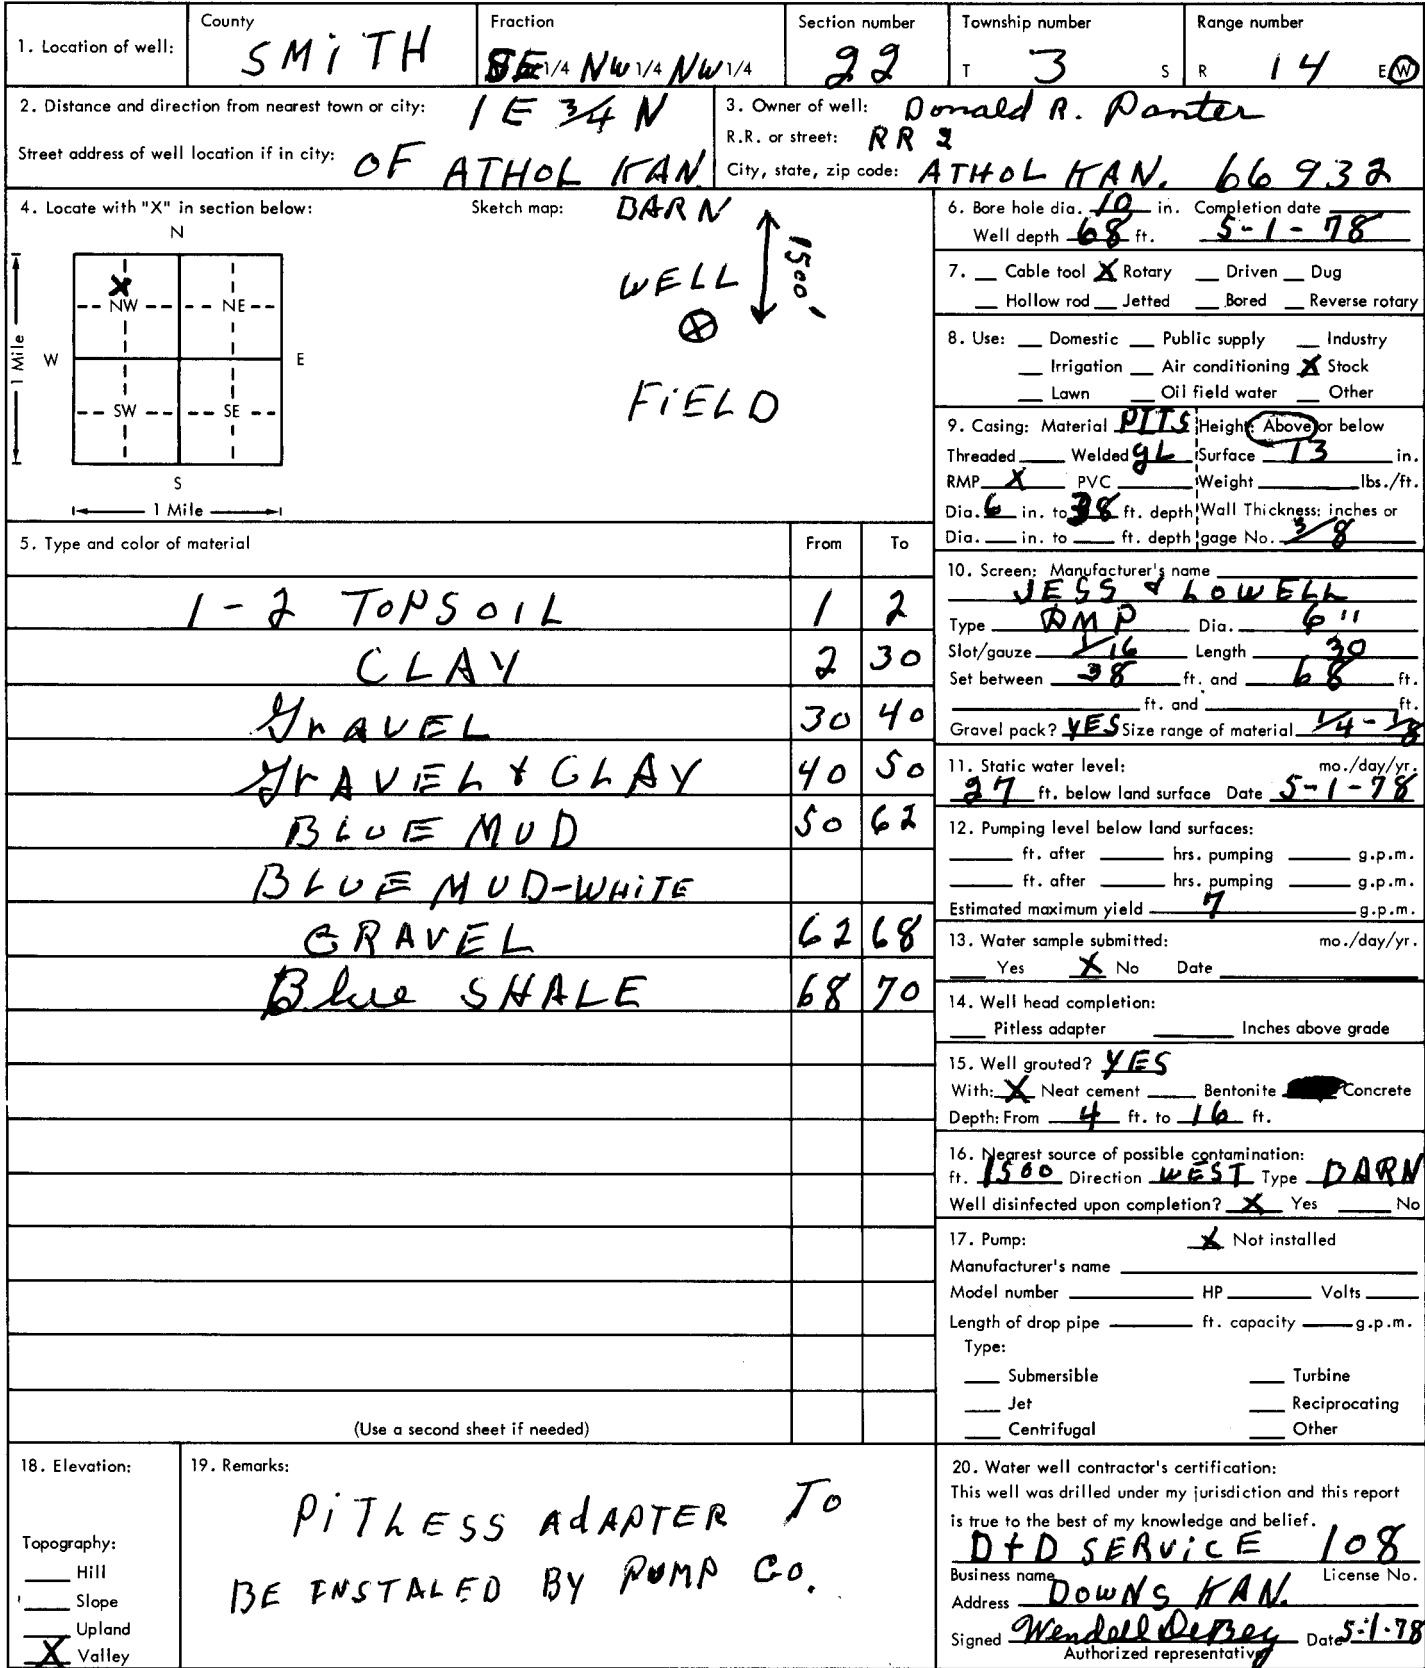 1. Location of well: County SMiTH Fraction SE 1/4 NW 1/4 NW 1/4 Section number 22 Township number T 3 S Range number R 14 E W
2. Distance and direction from nearest town or city: 1 E 3/4 N
Street address of well location if in city: OF ATHOL KAN.
3. Owner of well: Donald R. Panter
R.R. or street: RR 2
City, state, zip code: ATHOL KAN. 66932
4. Locate with "X" in section below: Sketch map:
N
X
NW NE
W E
SW SE
S
1 Mile
1 Mile
BARN
1500'
WELL
FiELD
5. Type and color of material From To
1-2 TOPSOIL 1 2
CLAY 2 30
GrAVEL 30 40
GrAVEL & CLAY 40 50
BLUE MUD 50 62
BLUE MUD-WHiTE
GRAVEL 62 68
Blue SHALE 68 70
(Use a second sheet if needed)
6. Bore hole dia. 10 in. Completion date
Well depth 68 ft. 5-1-78
7. Cable tool X Rotary Driven Dug
Hollow rod Jetted Bored Reverse rotary
8. Use: Domestic Public supply Industry
Irrigation Air conditioning X Stock
Lawn Oil field water Other
9. Casing: Material PITS Height: Above or below
Threaded Welded gL Surface 13 in.
RMP X PVC Weight lbs./ft.
Dia. 6 in. to 38 ft. depth Wall Thickness: inches or
Dia. in. to ft. depth gage No. 3/8
10. Screen: Manufacturer's name
JESS & LOWELL
Type RMP Dia. 6"
Slot/gauze 1/16 Length 30
Set between 38 ft. and 68 ft.
ft. and ft.
Gravel pack? YES Size range of material 1/4 - 1/8
11. Static water level: mo./day/yr.
27 ft. below land surface Date 5-1-78
12. Pumping level below land surfaces:
ft. after hrs. pumping g.p.m.
ft. after hrs. pumping g.p.m.
Estimated maximum yield 7 g.p.m.
13. Water sample submitted: mo./day/yr.
Yes X No Date
14. Well head completion:
Pitless adapter Inches above grade
15. Well grouted? YES
With: X Neat cement Bentonite Concrete
Depth: From 4 ft. to 16 ft.
16. Nearest source of possible contamination:
ft. 1500 Direction WEST Type BARN
Well disinfected upon completion? X Yes No
17. Pump: X Not installed
Manufacturer's name
Model number HP Volts
Length of drop pipe ft. capacity g.p.m.
Type:
Submersible Turbine
Jet Reciprocating
Centrifugal Other
18. Elevation:
Topography:
Hill
Slope
Upland
X Valley
19. Remarks:
PiTLESS AdAPTER To
BE INSTALED BY PUMP Co.
20. Water well contractor's certification:
This well was drilled under my jurisdiction and this report
is true to the best of my knowledge and belief.
D+D SERViCE 108
Business name License No.
Address DOWNS KAN.
Signed Wendell DeBey Date 5-1-78
Authorized representative